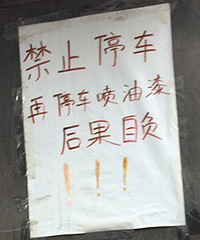 禁止停车
再停车喷油漆
后果自负
!!!